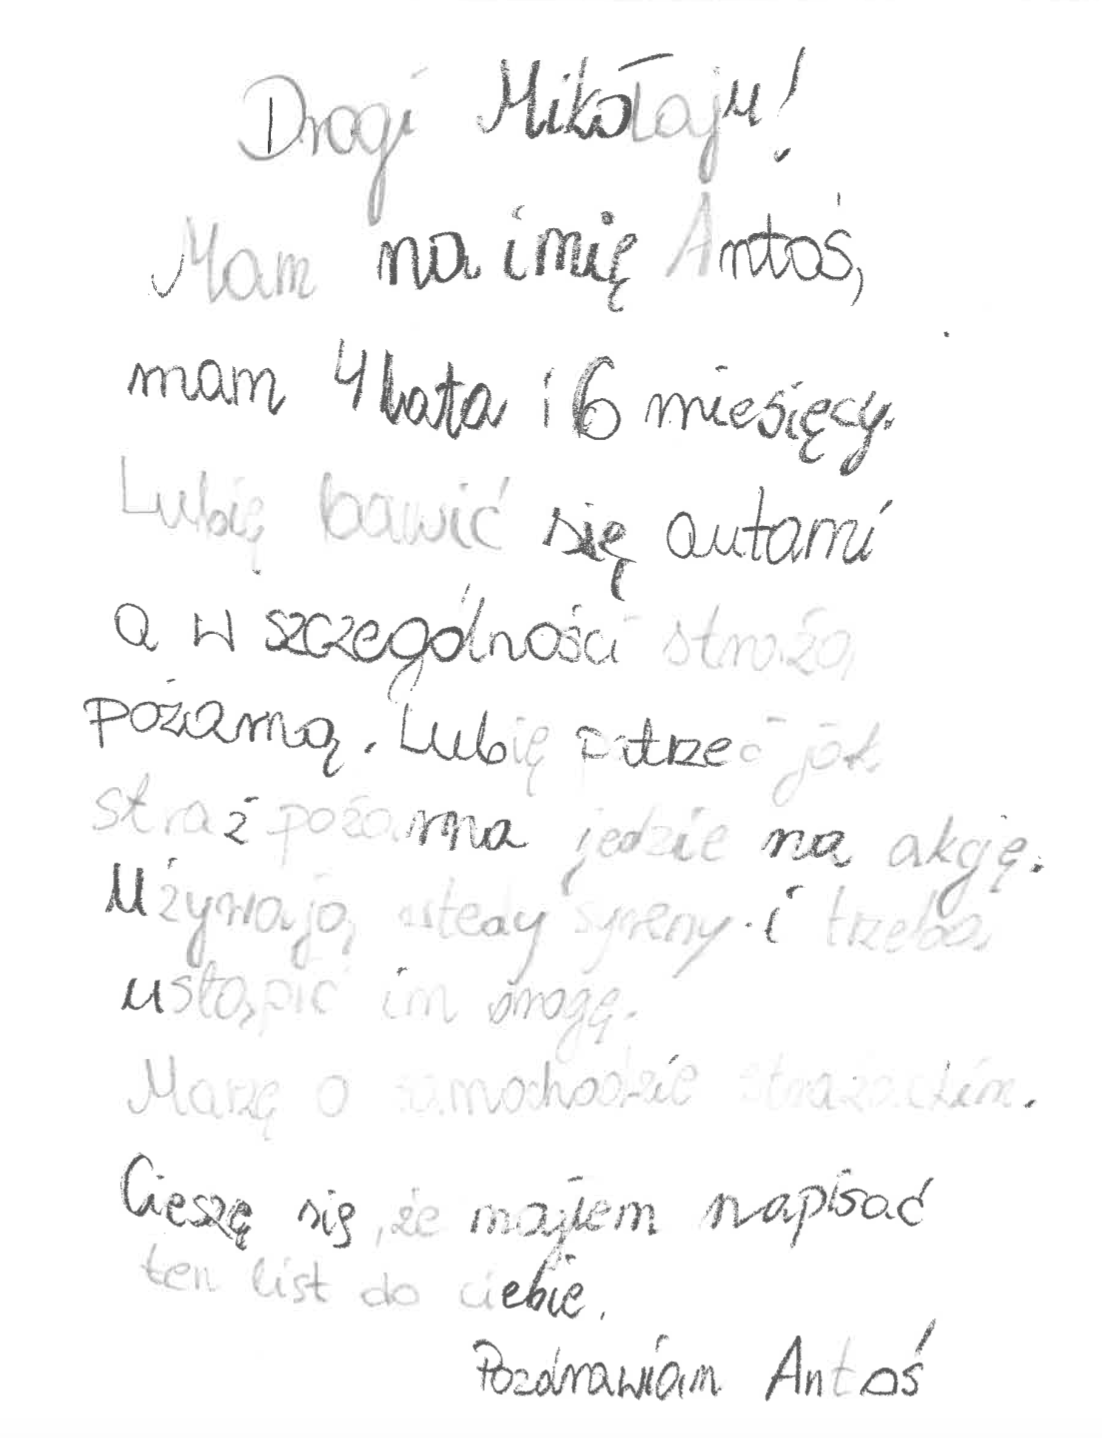 Drogi Mikołaju!
Mam na imię Antoś,
mam 4 lata i 6 miesięcy.
Lubię bawić się autami
a w szczególności strażą
pożarną. Lubię patrzeć jak
straż pożarna jedzie na akcję.
Używają wtedy syreny i trzeba
ustąpić im drogę.
Marzę o samochodzie strażackim.
Cieszę się, że mogłem napisać
ten list do ciebie.
Pozdrawiam Antoś